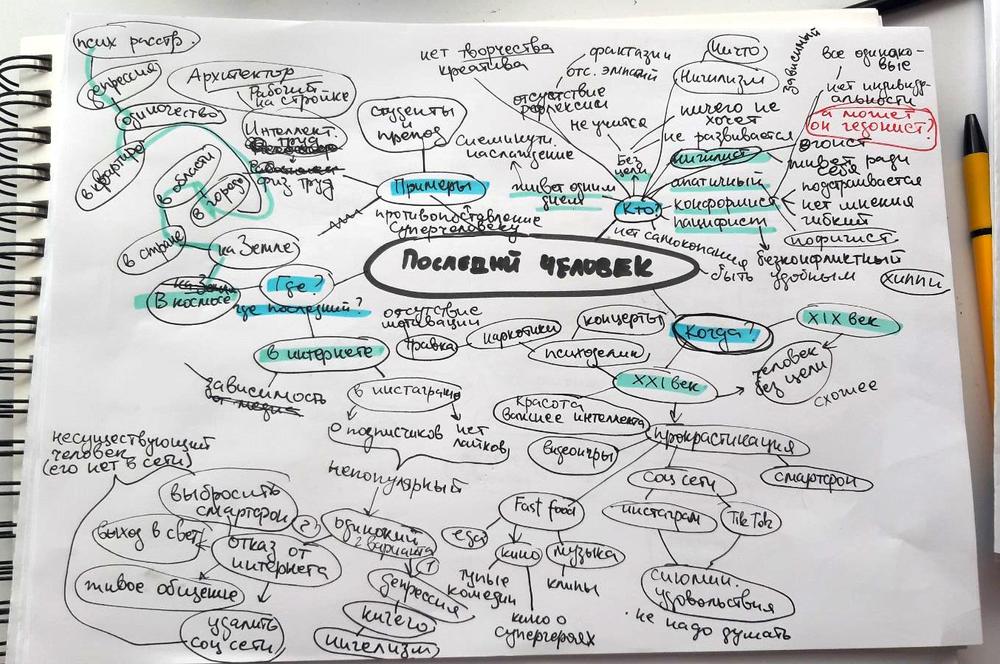 псих расстр.
депрессия
одиночество
в квартире
Архитектор
Рабочий
на стройке
Интеллект.
труд
физ труд
в области
в городе
в стране
на Земле
В космосе
Где?
где последний?
Студенты
и
препод
Примеры
противопоставление
суперчеловеку
нет творчества
креатива
фантазии
отс. эмпатии
отсутствие
рефлексии
не учится
Сиеминутн.
наслаждение
живет одним
днем
Без
цели
Кто?
Ничто
Нигилизм
ничего не
хочет
не развивается
нигилист
апатичный
конформист
пацифист
нет самокопания
быть удобным
зависимый
все одинако-
вые
нет индивиду-
альности
а может
он гедонист?
эгоист
живет ради
себя
подстраивается
нет мнения
гибкий
пофигист
безконфликтный
хиппи
Последний человек
Когда?
XIX век
человек
без цели
схожее
XXI век
концерты
психоделик
наркотики
травка
отсутствие
мотивации
красота
важнее интеллекта
видеоигры
прокрастинация
смартфон
соц сети
инстаграм
TikTok
сиюмин.
удовольствия
не надо думать
Fast food
еда
кино
музыка
тупые
комедии
клипы
кино о
супергероях
в интернете
зависимость
от медиа
в инстаграме
0 подписчиков
нет
лайков
непопулярный
одинокий
2 варианта
1)
депрессия
ничего
нигелизм
2)
отказ от
интернета
выбросить
смартфон
выход в свет
живое общение
удалить
соц сети
несуществующий
человек
(его нет в сети)